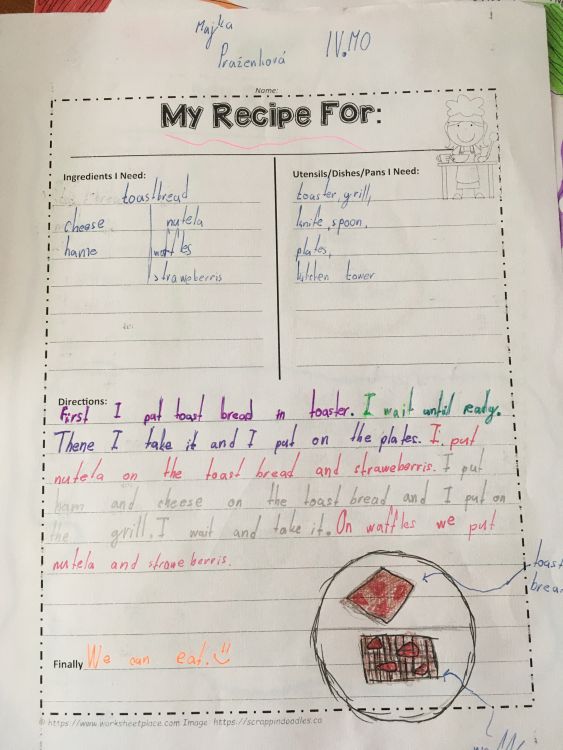 Majka
Praženková
IV.MO
Name:
My Recipe For:
Ingredients I Need:
toastbread
cheese
hame
nutela
waffles
straweberris
Utensils/Dishes/Pans I Need:
toaster, grill,
knife, spoon,
plates,
kitchen tower
Directions:
First I put toast bread in toaster. I wait until ready.
Thene I take it and I put on the plates. I put
nutela on the toast bread and straweberris. I put
ham and cheese on the toast bread and I put on
the grill. I wait and take it. On waffles we put
nutela and strawe berris.
toast
brea
Finally We can eat. :)
© https://www.worksheetplace.com Image https://scrappindoodles.ca